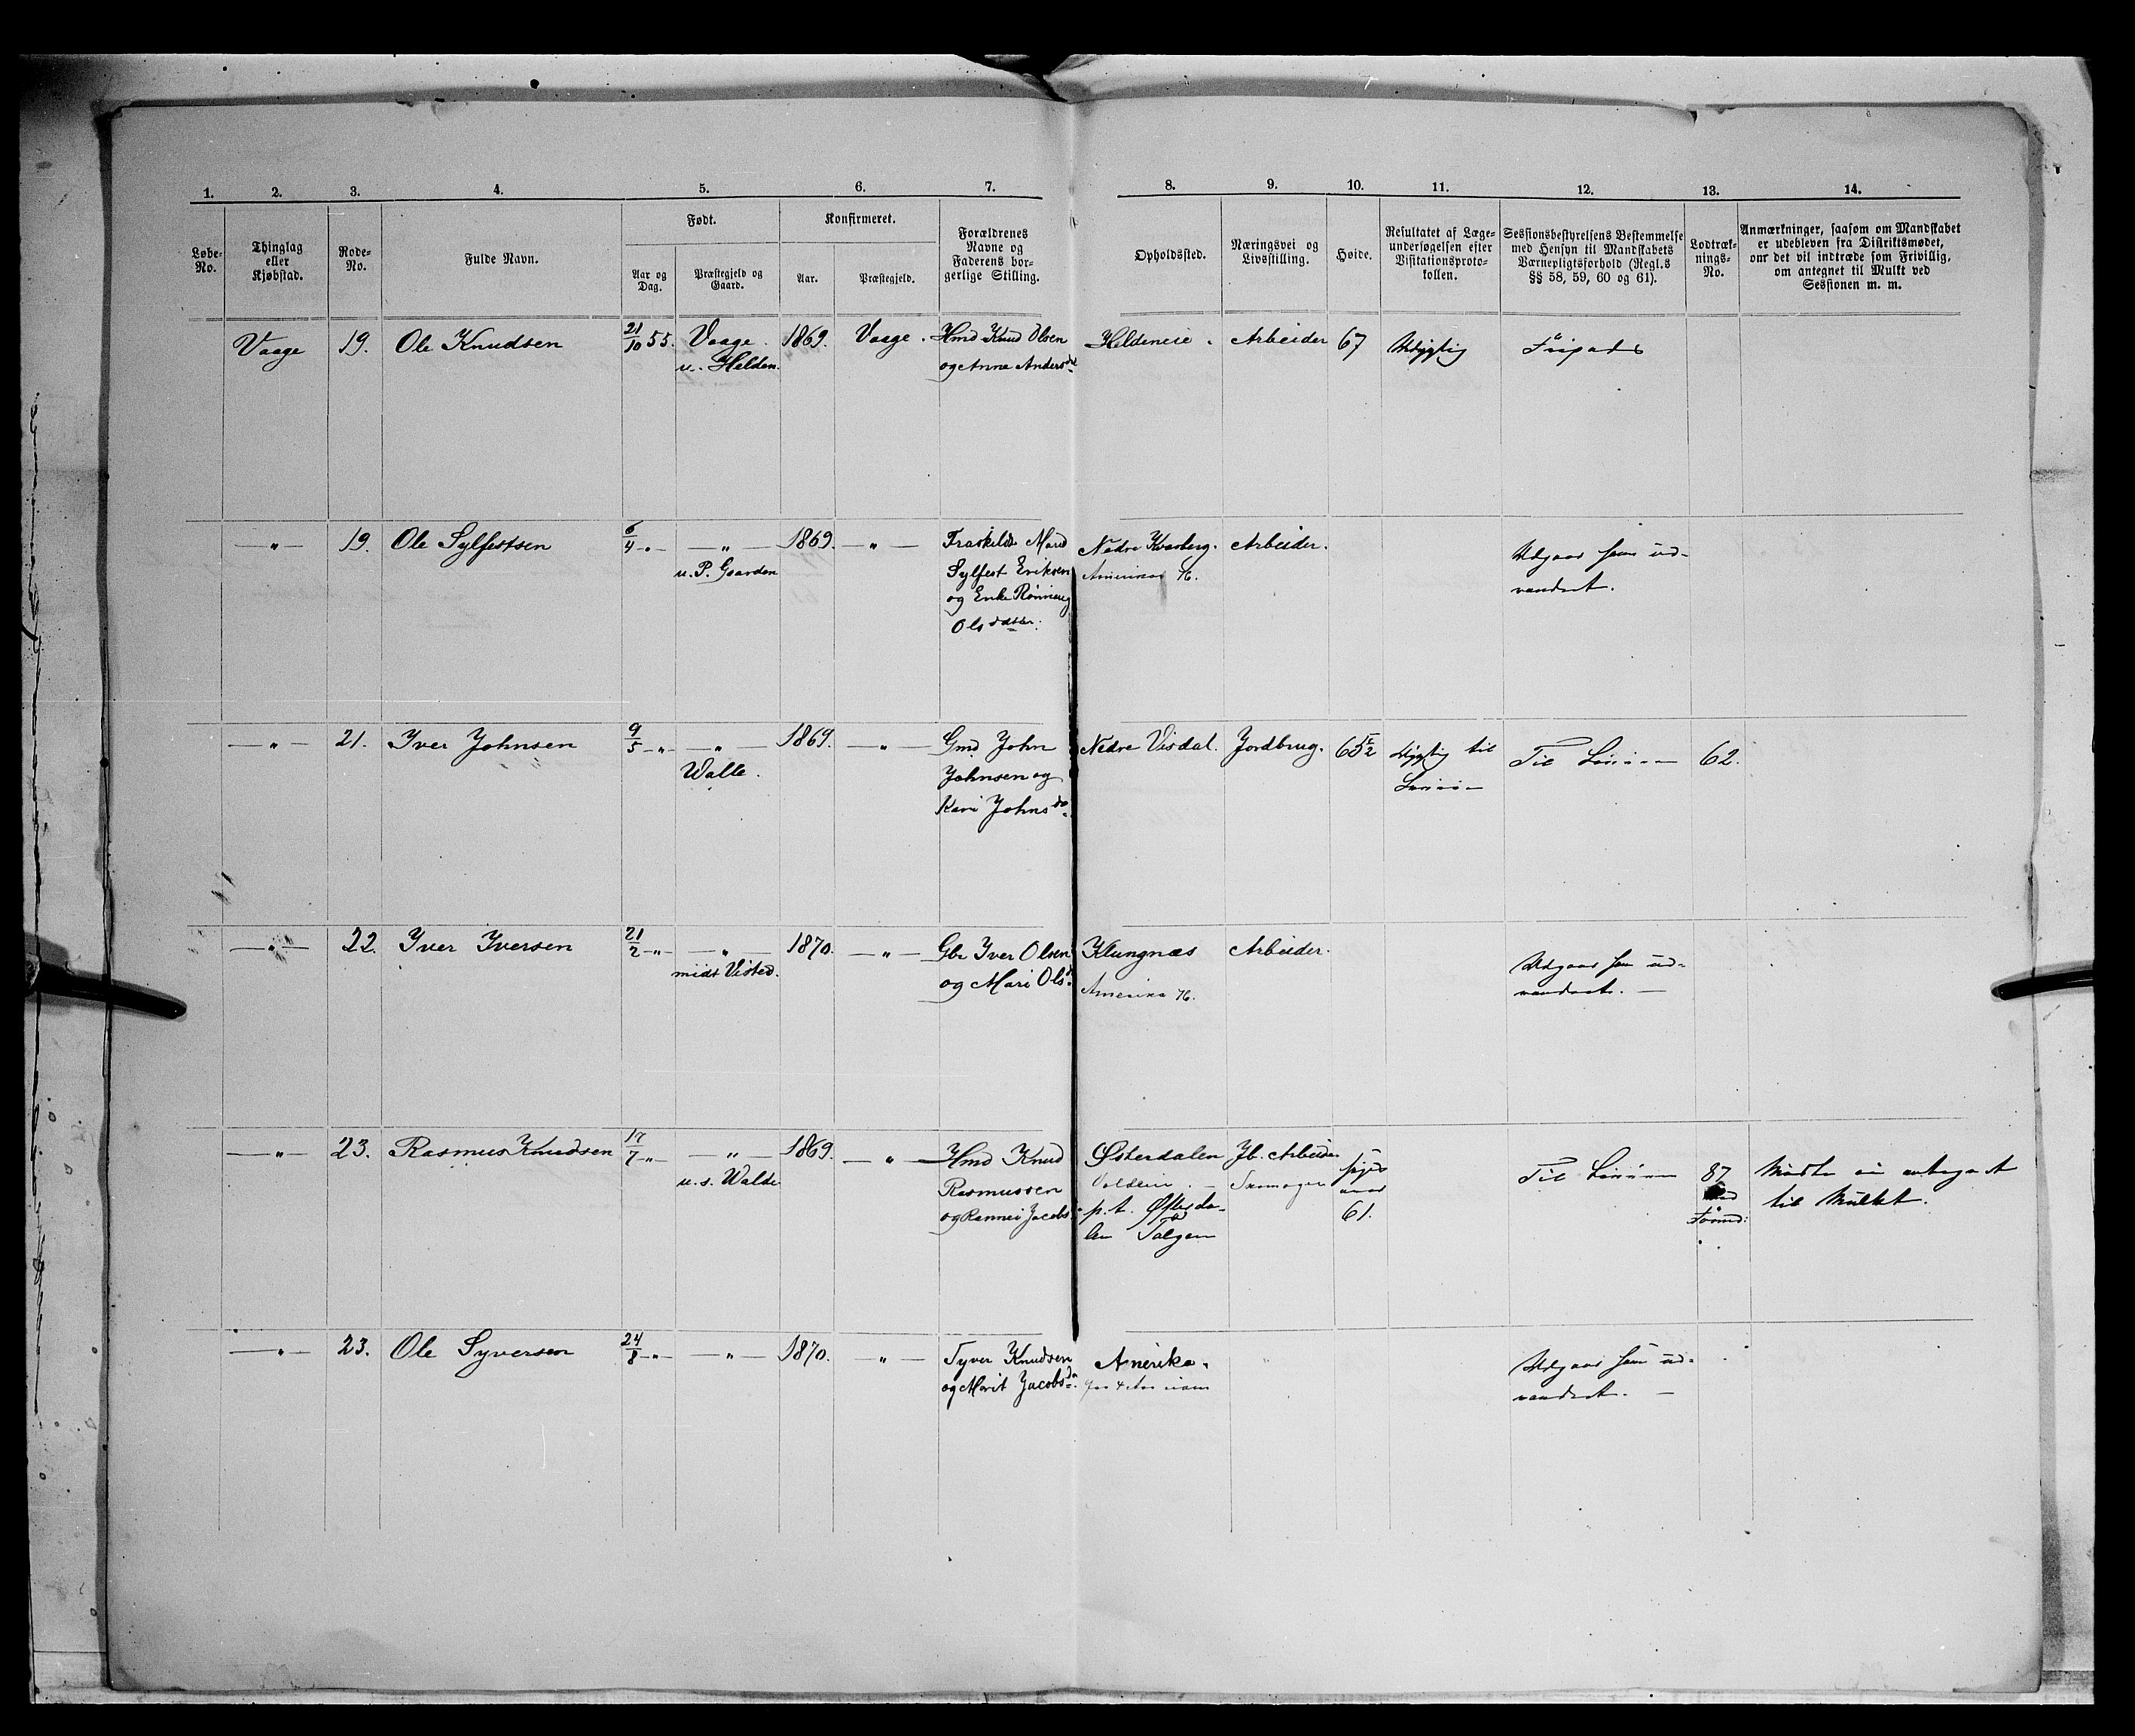 1. 2. 3. 4. 5. 6. 7. 8. 9. 10. 11. 12. 13. 14.
Løbe-
No.
Thinglag
eller
Kjøbstad.
Rode-
No.
Fulde Navn.
Født.
Aar og
Dag.
Præstegjeld og
Gaard.
Konfirmeret.
Aar.
Præstegjeld.
Forældrenes
Navne og
Faderens bor-
gerlige Stilling.
Opholdssted.
Næringsvei og
Livsstilling.
Høide.
Resultatet af Læge-
undersøgelsen efter
Visitationsproto-
kollen.
Sessionsbestyrelsens Bestemmelse
med Hensyn til Mandskabets
Værnepligtsforhold (Regl.s
§§ 58, 59, 60 og 61).
Lodtræk-
nings-
No.
Anmærkninger, saasom om Mandskabet
er udebleven fra Distriktsmødet,
om det vil indtræde som Frivillig,
om antegnet til Mulkt ved
Sessionen m. m.
Vaage 19. Ole Knudsen 21/10 55. Vaage. 1869. Vaage. Hmd Knud Olsen Heldeneie. Arbeider 67 Udygtig Fripads
u. Helden. og Anne Andersdtr
—„— 19. Ole Sylfestsen 6/4 -„- —„— 1869. —„— Fraskildt Mand Nedre Kvarberg. Arbeider. Udgaar som ud-
u. P. Gaarden Sylfest Eriksen Amerika 76. vandret.
og Enke Rønnaug
Olsdatter.
—„— 21. Iver Johnsen 9/5 -„- —„— 1869. —„— Gmd John Nedre Visdal. Jordbrug. 65 1/2 dygtig til Til Linien 62.
Walle. Johnsen og Linien
Kari Johnsda.
—„— 22. Iver Iversen 21/2 -„- —„— 1870. —„— Gbr Iver Olsen Klungnæs Arbeider. Udgaar som ud-
midt Visted. og Mari Olsd. Amerika 76. vandret. —
—„— 23. Rasmus Knudsen 17/7 -„- —„— 1869. —„— Hmd Knud Østerdalen Jb. Arbeider Til Linien 87 Mødte ei antegnet
u. s. Walde Rasmussen Skomager til Mulkt.
og Rannei Jacobs p. t. Østerda- 61.
len Tolgen
—„— 23. Ole Syversen 24/8 -„- —„— 1870. —„— Syver Knudsen Amerika. Udgaar som ud-
og Marit Jacobsda. for 4 Aar siden vandret. —